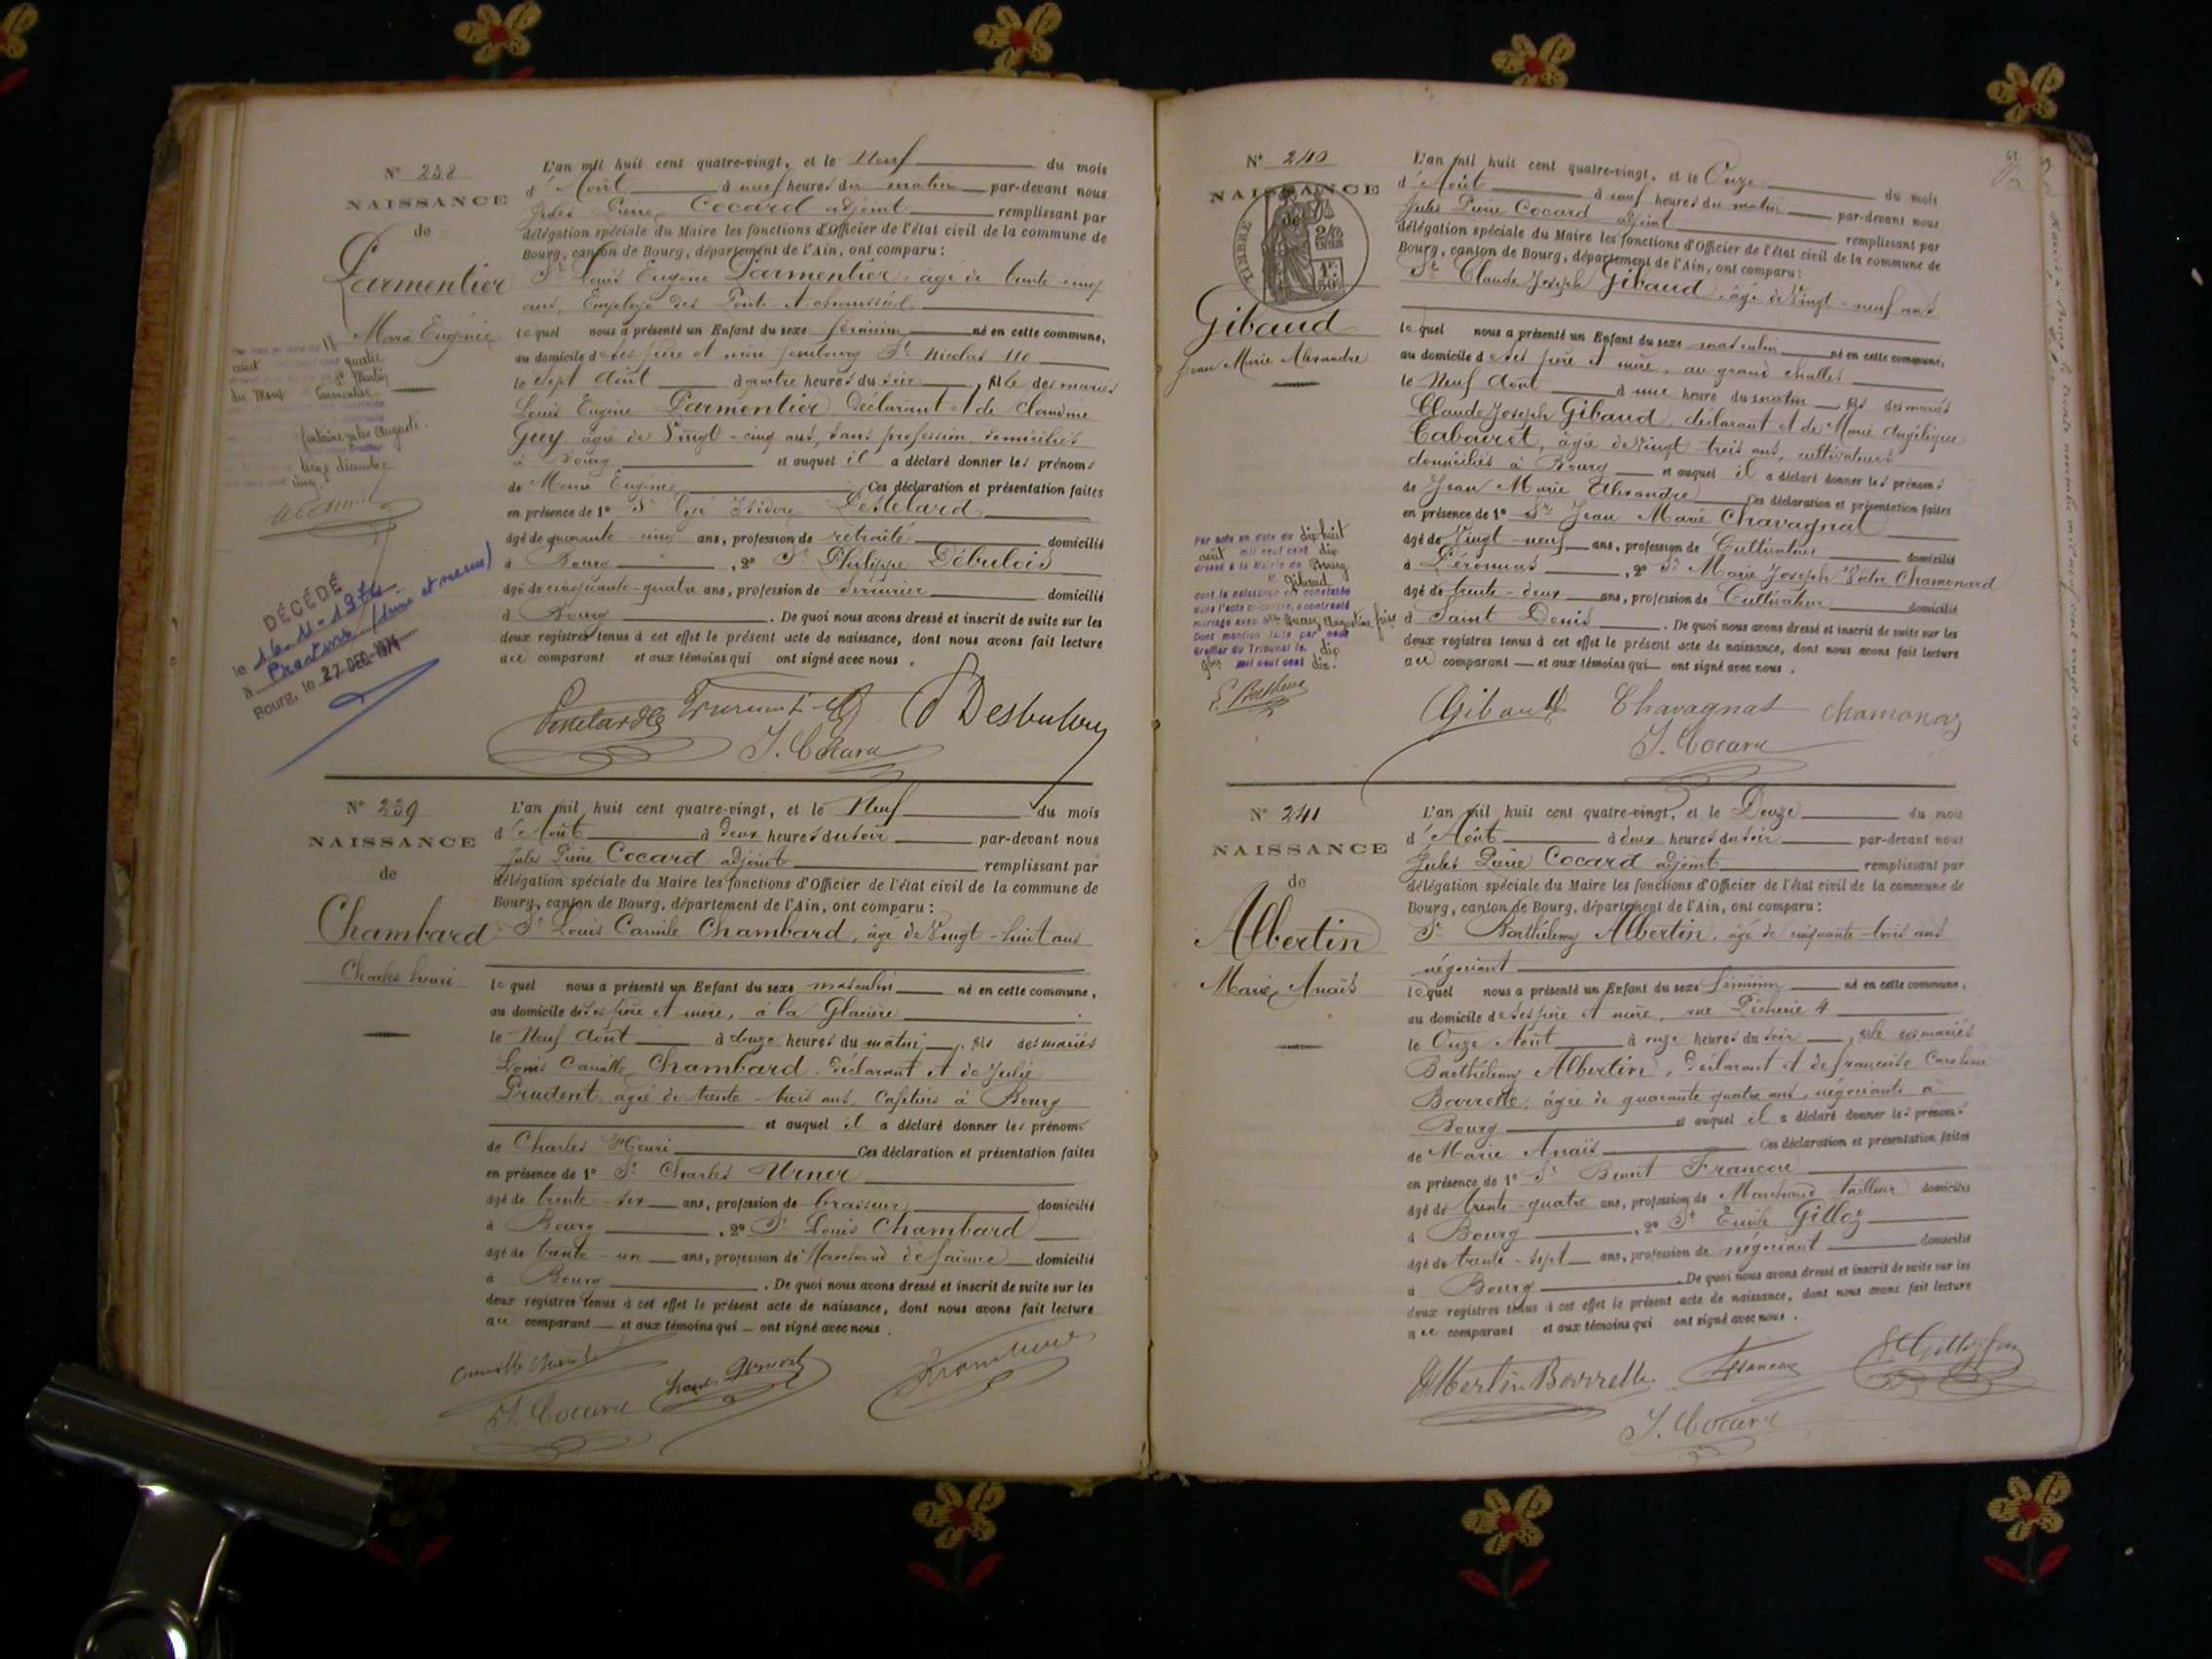 N° 238
NAISSANCE
de
Parmentier
Marie Eugénie
L'an mil huit cent quatre-vingt, et le Neuf du mois
d'Août à neuf heures du matin par-devant nous
Jules Pierre Cocard adjoint remplissant par
délégation spéciale du Maire les fonctions d'Officier de l'état civil de la commune de
Bourg, canton de Bourg, département de l'Ain, ont comparu :
Sr Louis Eugène Parmentier, âgé de trente-cinq
ans, Employé des Ponts et chaussées
lequel nous a présenté un Enfant du sexe féminin né en cette commune,
au domicile de ses père et mère faubourg St Nicolas 110
le sept Août à quatre heures du soir, fille des mariés
Louis Eugène Parmentier Déclarant et de Claudine
Guy âgée de Vingt-cinq ans, sans profession domiciliés
à Bourg et auquel il a déclaré donner les prénoms
de Marie Eugénie Ces déclaration et présentation faites
en présence de 1° Sr Isidore Pestelard
âgé de quarante-cinq ans, profession de retraité domicilié
à Bourg, 2° Sr Philippe Débulois
âgé de cinquante-quatre ans, profession de serrurier domicilié
à Bourg. De quoi nous avons dressé et inscrit de suite sur les
deux registres tenus à cet effet le présent acte de naissance, dont nous avons fait lecture
au comparant et aux témoins qui ont signé avec nous.
J. Cocard
août quatre
St Martin
du Mont Parmentier
fontaine Jules Auguste.
treize décembre
cinq
DÉCÉDÉ
le 16-11-1974
à
Bourg, le 27 DEC. 1974
N° 239
NAISSANCE
de
Chambard
Charles henri
L'an mil huit cent quatre-vingt, et le Neuf du mois
d'Août à deux heures du soir par-devant nous
Jules Pierre Cocard adjoint remplissant par
délégation spéciale du Maire les fonctions d'Officier de l'état civil de la commune de
Bourg, canton de Bourg, département de l'Ain, ont comparu :
Sr Louis Camille Chambard, âgé de Vingt-huit ans
lequel nous a présenté un Enfant du sexe masculin né en cette commune,
au domicile de ses père et mère, à la Glacière
le Neuf Août à douze heures du matin, fils des mariés
Louis Camille Chambard, déclarant et de Julie
Prudent âgée de trente-trois ans, Cafetiers à Bourg
et auquel il a déclaré donner les prénoms
de Charles Henri Ces déclaration et présentation faites
en présence de 1° Sr Charles
âgé de trente-six ans, profession de brasseur domicilié
à Bourg, 2° Sr Louis Chambard
âgé de trente-un ans, profession de Marchand de faïence domicilié
à Bourg. De quoi nous avons dressé et inscrit de suite sur les
deux registres tenus à cet effet le présent acte de naissance, dont nous avons fait lecture
au comparant et aux témoins qui ont signé avec nous.
J. Cocard
N° 240
NAISSANCE
de
TIMBRE
Gibaud
Jean Marie Alexandre
L'an mil huit cent quatre-vingt, et le Onze du mois
d'Août à neuf heures du matin par-devant nous
Jules Pierre Cocard adjoint remplissant par
délégation spéciale du Maire les fonctions d'Officier de l'état civil de la commune de
Bourg, canton de Bourg, département de l'Ain, ont comparu :
Sr Claude Joseph Gibaud, âgé de Vingt-neuf ans
lequel nous a présenté un Enfant du sexe masculin né en cette commune,
au domicile de ses père et mère, au grand challes
le Neuf Août à une heure du matin, fils des mariés
Claude Joseph Gibaud, déclarant et de Marie Angélique
Cabouret, âgée de Vingt trois ans, cultivateurs
domiciliés à Bourg et auquel il a déclaré donner les prénoms
de Jean Marie Alexandre Ces déclaration et présentation faites
en présence de 1° Sr Jean Marie Chavagnat
âgé de Vingt-neuf ans, profession de Cultivateur domicilié
à Péronnas, 2° Sr Marie Joseph Victor Chamonard
âgé de trente-deux ans, profession de Cultivateur domicilié
à Saint Denis. De quoi nous avons dressé et inscrit de suite sur les
deux registres tenus à cet effet le présent acte de naissance, dont nous avons fait lecture
au comparant et aux témoins qui ont signé avec nous.
Gibaud Chavagnat
J. Cocard
Par acte en date du dix-huit
août mil neuf cent dix
dressé à la Mairie de Bourg
M. Gibaud
dont la naissance est constatée
dans l'acte ci-contre, a contracté
mariage avec Augustine
Dont mention faite par nous
Greffier du Tribunal le dix
9bre mil neuf cent dix.
N° 241
NAISSANCE
de
Albertin
Marie Anaïs
L'an mil huit cent quatre-vingt, et le Douze du mois
d'Août à deux heures du soir par-devant nous
Jules Pierre Cocard adjoint remplissant par
délégation spéciale du Maire les fonctions d'Officier de l'état civil de la commune de
Bourg, canton de Bourg, département de l'Ain, ont comparu :
Sr Barthélemy Albertin, âgé de cinquante-trois ans
négociant
lequel nous a présenté un Enfant du sexe féminin né en cette commune,
au domicile de ses père et mère, rue Pêcherie 4
le Onze Août à onze heures du soir, fille des mariés
Barthélemy Albertin, déclarant et de françoise Caroline
Barrelle, âgée de quarante quatre ans, négociants à
Bourg et auquel il a déclaré donner les prénoms
de Marie Anaïs Ces déclaration et présentation faites
en présence de 1° Sr Benoit Francon
âgé de trente-quatre ans, profession de Marchand tailleur domicilié
à Bourg, 2° Sr Emile Gilloz
âgé de trente-sept ans, profession de négociant domicilié
à Bourg. De quoi nous avons dressé et inscrit de suite sur les
deux registres tenus à cet effet le présent acte de naissance, dont nous avons fait lecture
au comparant et aux témoins qui ont signé avec nous.
Albertin Barrelle
J. Cocard